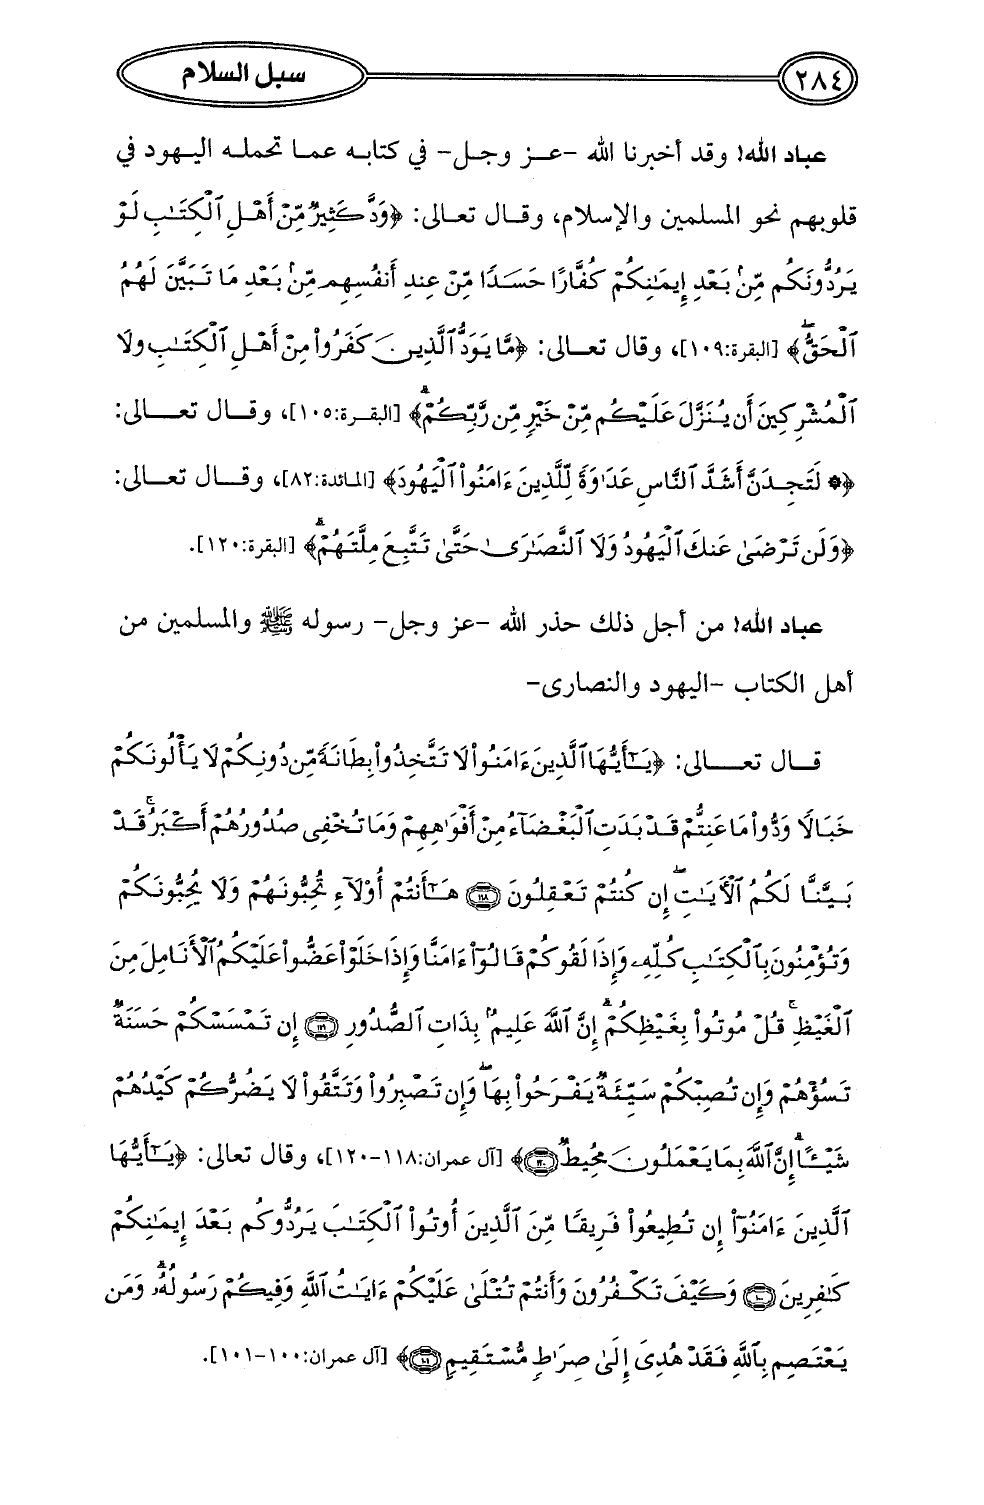 ٢٨٤
سبل السلام
عباد الله! وقد أخبرنا الله -عز وجل- في كتابه عما تحمله اليهود في
قلوبهم نحو المسلمين والإسلام، وقال تعالى: ﴿وَدَّ كَثِيرٌ مِّنْ أَهْلِ ٱلْكِتَٰبِ لَوْ
يَرُدُّونَكُم مِّنۢ بَعْدِ إِيمَٰنِكُمْ كُفَّارًا حَسَدًا مِّنْ عِندِ أَنفُسِهِم مِّنۢ بَعْدِ مَا تَبَيَّنَ لَهُمُ
ٱلْحَقُّ ۖ﴾ [البقرة:١٠٩]، وقال تعالى: ﴿مَّا يَوَدُّ ٱلَّذِينَ كَفَرُوا۟ مِنْ أَهْلِ ٱلْكِتَٰبِ وَلَا
ٱلْمُشْرِكِينَ أَن يُنَزَّلَ عَلَيْكُم مِّنْ خَيْرٍ مِّن رَّبِّكُمْ ۗ﴾ [البقرة:١٠٥]، وقال تعالى:
﴿۞ لَتَجِدَنَّ أَشَدَّ ٱلنَّاسِ عَدَٰوَةً لِّلَّذِينَ ءَامَنُوا۟ ٱلْيَهُودَ﴾ [المائدة:٨٢]، وقال تعالى:
﴿وَلَن تَرْضَىٰ عَنكَ ٱلْيَهُودُ وَلَا ٱلنَّصَٰرَىٰ حَتَّىٰ تَتَّبِعَ مِلَّتَهُمْ ۗ﴾ [البقرة:١٢٠].
عباد الله! من أجل ذلك حذر الله -عز وجل- رسوله ﷺ والمسلمين من
أهل الكتاب -اليهود والنصارى-
قال تعالى: ﴿يَٰٓأَيُّهَا ٱلَّذِينَ ءَامَنُوا۟ لَا تَتَّخِذُوا۟ بِطَانَةً مِّن دُونِكُمْ لَا يَأْلُونَكُمْ
خَبَالًا وَدُّوا۟ مَا عَنِتُّمْ قَدْ بَدَتِ ٱلْبَغْضَآءُ مِنْ أَفْوَٰهِهِمْ وَمَا تُخْفِى صُدُورُهُمْ أَكْبَرُ ۚ قَدْ
بَيَّنَّا لَكُمُ ٱلْءَايَٰتِ ۖ إِن كُنتُمْ تَعْقِلُونَ ﴿١١٨﴾ هَٰٓأَنتُمْ أُو۟لَآءِ تُحِبُّونَهُمْ وَلَا يُحِبُّونَكُمْ
وَتُؤْمِنُونَ بِٱلْكِتَٰبِ كُلِّهِۦ وَإِذَا لَقُوكُمْ قَالُوٓا۟ ءَامَنَّا وَإِذَا خَلَوْا۟ عَضُّوا۟ عَلَيْكُمُ ٱلْأَنَامِلَ مِنَ
ٱلْغَيْظِ ۚ قُلْ مُوتُوا۟ بِغَيْظِكُمْ ۗ إِنَّ ٱللَّهَ عَلِيمٌۢ بِذَاتِ ٱلصُّدُورِ ﴿١١٩﴾ إِن تَمْسَسْكُمْ حَسَنَةٌ
تَسُؤْهُمْ وَإِن تُصِبْكُمْ سَيِّئَةٌ يَفْرَحُوا۟ بِهَا ۖ وَإِن تَصْبِرُوا۟ وَتَتَّقُوا۟ لَا يَضُرُّكُمْ كَيْدُهُمْ
شَيْـًٔا ۗ إِنَّ ٱللَّهَ بِمَا يَعْمَلُونَ مُحِيطٌ ﴿١٢٠﴾﴾ [آل عمران:١١٨-١٢٠]، وقال تعالى: ﴿يَٰٓأَيُّهَا
ٱلَّذِينَ ءَامَنُوٓا۟ إِن تُطِيعُوا۟ فَرِيقًا مِّنَ ٱلَّذِينَ أُوتُوا۟ ٱلْكِتَٰبَ يَرُدُّوكُم بَعْدَ إِيمَٰنِكُمْ
كَٰفِرِينَ ﴿١٠٠﴾ وَكَيْفَ تَكْفُرُونَ وَأَنتُمْ تُتْلَىٰ عَلَيْكُمْ ءَايَٰتُ ٱللَّهِ وَفِيكُمْ رَسُولُهُۥ ۗ وَمَن
يَعْتَصِم بِٱللَّهِ فَقَدْ هُدِىَ إِلَىٰ صِرَٰطٍ مُّسْتَقِيمٍ ﴿١٠١﴾﴾ [آل عمران:١٠٠-١٠١].